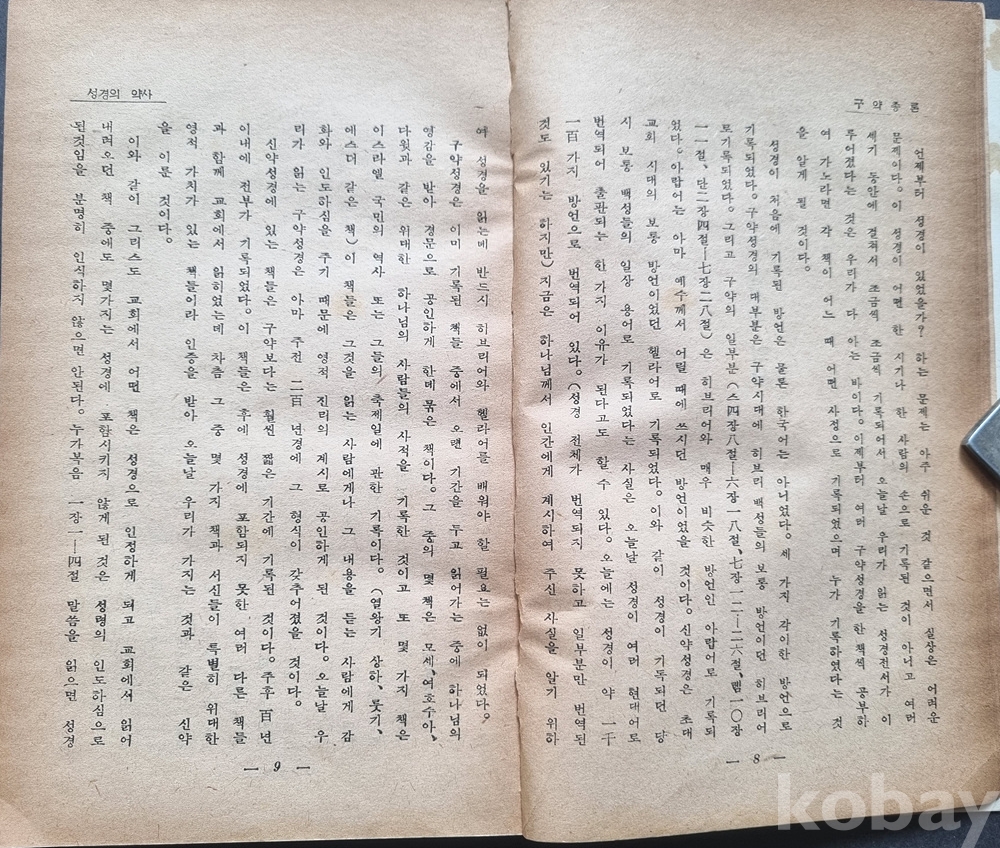 구약총론
언제부터 성경이 있었을가? 하는 문제는 아주 쉬운 것 같으면서 실상은 어려운
문제이다。이 성경이 어떤 한 시기나 한 사람의 손으로 기록된 것이 아니고 여러
세기 동안에 걸쳐서 조금씩 조금씩 기록되어서 오늘날 우리가 읽는 성경전서가 이
루어졌다는 것은 우리가 다 아는 바이다。이제부터 여러 구약성경을 한책씩 공부하
여 가노라면 각 책이 어느 때 어떤 사정으로 기록되었으며 누가 기록하였다는 것
을 알게 될 것이다。
성경이 처음에 기록된 방언은 물론 한국어는 아니었다。세 가지 각이한 방언으로
기록되었다。구약성경의 대부분은 구약시대에 히브리 백성들의 보통 방언이던 히브리어
로기록되었다。그리고 구약의 일부분(스四장八절—六장一八절、七장一二—二六절、렘一〇장
一一절、단二장四절—七장二八절)은 히브리어와 매우 비슷한 방언인 아람어로 기록되
었다。아람어는 아마 예수께서 어릴 때에 쓰시던 방언이었을 것이다。신약성경은 초대
교회 시대의 보통 방언이었던 헬라어로 기록되었다。이와 같이 성경이 기록되던 당
시 보통 백성들의 일상 용어로 기록되었다는 사실은 오늘날 성경이 여러 현대어로
번역되어 출판되는 한 가지 이유가 된다고도 할 수 있다。오늘에는 성경이 약 一千
一百 가지 방언으로 번역되어 있다。(성경 전체가 번역되지 못하고 일부분만 번역된
것도 있기는 하지만) 지금은 하나님께서 인간에게 계시하여 주신 사실을 알기 위하
— 8 —
성경의 약사
여 성경을 읽는데 반드시 히브리어와 헬라어를 배워야 할 필요는 없이 되었다。
구약성경은 이미 기록된 책들 중에서 오랜 기간을 두고 읽어가는 중에 하나님의
영감을 받아 경문으로 공인하게 한데 묶은 책이다。그 중의 몇 책은 모세、여호수아、
다윗과 같은 위대한 하나님의 사람들의 사적을 기록한 것이고 또 몇 가지 책은
이스라엘 국민의 역사 또는 그들의 축제일에 관한 기록이다。(열왕기 상하、룻기、
에스더 같은 책)이 책들은 그것을 읽는 사람에게나 그 내용을 듣는 사람에게 감
화와 인도하심을 주기 때문에 영적 진리의 계시로 공인하게 된 것이다。오늘날 우
리가 읽는 구약성경은 아마 주전 二百 년경에 그 형식이 갖추어졌을 것이다。
신약성경에 있는 책들은 구약보다는 훨씬 짧은 기간에 기록된 것이다。주후 百 년
이내에 전부가 기록되었다。이 책들은 후에 성경에 포함되지 못한 여러 다른 책들
과 함께 교회에서 읽히었는데 차츰 그 중 몇 가지 책과 서신들이 특별히 위대한
영적 가치가 있는 책들이라 인증을 받아 오늘날 우리가 가지는 것과 같은 신약
을 이룬 것이다。
이와 같이 그리스도 교회에서 어떤 책은 성경으로 인정하게 되고 교회에서 읽어
내려오던 책 중에도 몇가지는 성경에 포함시키지 않게 된 것은 성령의 인도하심으로
된것임을 분명히 인식하지 않으면 안된다。누가복음 一장一—四절 말씀을 읽으면 성경
— 9 —
kobay